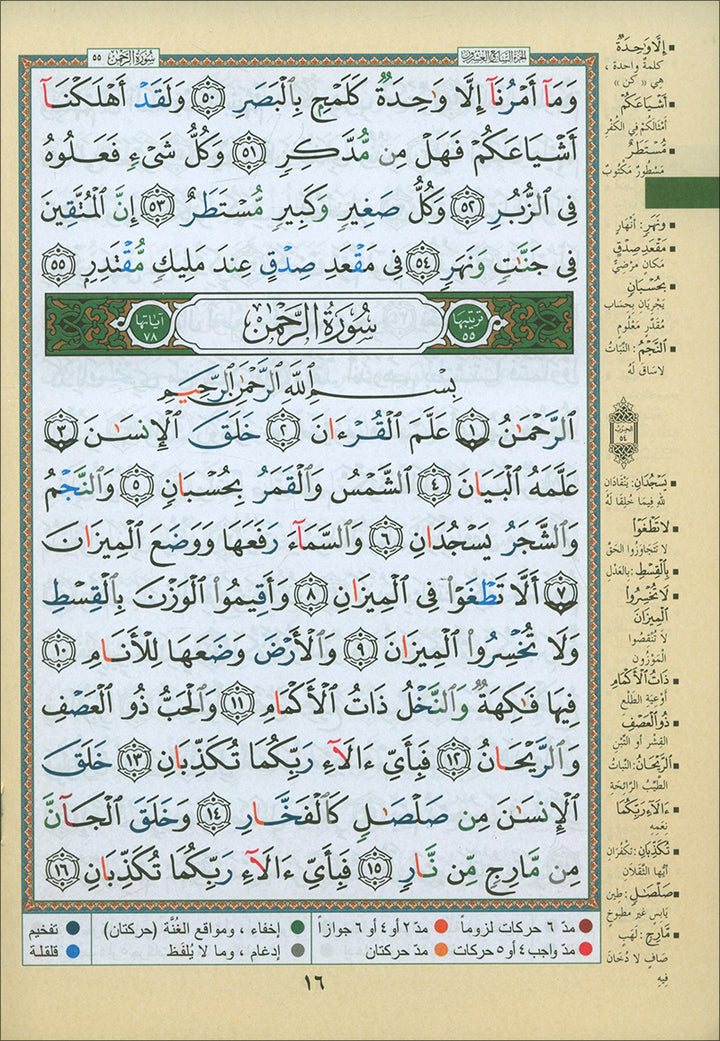 سُورَةُ الرَّحْمٰن ٥٥
الجزء السابع والعشرون
وَمَآ أَمْرُنَآ إِلَّا وَٰحِدَةٌ كَلَمْحٍۭ بِٱلْبَصَرِ ٥٠ وَلَقَدْ أَهْلَكْنَآ
أَشْيَاعَكُمْ فَهَلْ مِن مُّدَّكِرٍ ٥١ وَكُلُّ شَىْءٍ فَعَلُوهُ
فِى ٱلزُّبُرِ ٥٢ وَكُلُّ صَغِيرٍ وَكَبِيرٍ مُّسْتَطَرٌ ٥٣ إِنَّ ٱلْمُتَّقِينَ
فِى جَنَّٰتٍ وَنَهَرٍ ٥٤ فِى مَقْعَدِ صِدْقٍ عِندَ مَلِيكٍ مُّقْتَدِرٍۭ ٥٥
ترتيبها ٥٥
سُورَةُ الرَّحْمٰن
آياتها ٧٨
بِسْمِ ٱللَّهِ ٱلرَّحْمَٰنِ ٱلرَّحِيمِ
ٱلرَّحْمَٰنُ ١ عَلَّمَ ٱلْقُرْءَانَ ٢ خَلَقَ ٱلْإِنسَٰنَ ٣
عَلَّمَهُ ٱلْبَيَانَ ٤ ٱلشَّمْسُ وَٱلْقَمَرُ بِحُسْبَانٍ ٥ وَٱلنَّجْمُ
وَٱلشَّجَرُ يَسْجُدَانِ ٦ وَٱلسَّمَآءَ رَفَعَهَا وَوَضَعَ ٱلْمِيزَانَ
٧ أَلَّا تَطْغَوْا۟ فِى ٱلْمِيزَانِ ٨ وَأَقِيمُوا۟ ٱلْوَزْنَ بِٱلْقِسْطِ
وَلَا تُخْسِرُوا۟ ٱلْمِيزَانَ ٩ وَٱلْأَرْضَ وَضَعَهَا لِلْأَنَامِ ١٠
فِيهَا فَٰكِهَةٌ وَٱلنَّخْلُ ذَاتُ ٱلْأَكْمَامِ ١١ وَٱلْحَبُّ ذُو ٱلْعَصْفِ
وَٱلرَّيْحَانُ ١٢ فَبِأَىِّ ءَالَآءِ رَبِّكُمَا تُكَذِّبَانِ ١٣ خَلَقَ
ٱلْإِنسَٰنَ مِن صَلْصَٰلٍ كَٱلْفَخَّارِ ١٤ وَخَلَقَ ٱلْجَآنَّ
مِن مَّارِجٍ مِّن نَّارٍ ١٥ فَبِأَىِّ ءَالَآءِ رَبِّكُمَا تُكَذِّبَانِ ١٦
إِلَّا وَٰحِدَةٌ
كلمةً واحدة ،
هِيَ « كُن »
أَشْيَاعَكُمْ
أَمْثَالَكُمْ فِي الكُفْرِ
مُّسْتَطَرٌ
مَسْطُورٌ مَكْتُوبٌ
وَنَهَرٍ: أَنْهَارٍ
مَقْعَدِ صِدْقٍ
مَكَانٍ مَرْضِيٍّ
بِحُسْبَانٍ
يَجْرِيَانِ بِحِسَابٍ
مُقَدَّرٍ مَعْلُومٍ
ٱلنَّجْمُ: النَّبَاتُ
لا سَاقَ لَهُ
الحزب ٥٤
يَسْجُدَانِ: يَنْقَادَانِ
لله فِيمَا خُلِقَا لَهُ
لا تَطْغَوْا۟
لا تَتَجَاوَزُوا الحَقَّ
بِٱلْقِسْطِ: بِالعَدْلِ
لَا تُخْسِرُوا۟
ٱلْمِيزَانَ
لا تُنْقِصُوا
المَوْزُونَ
ذَاتُ ٱلْأَكْمَامِ
أَوْعِيَةِ الطَّلْعِ
ذُو ٱلْعَصْفِ
القِشْرِ أو التِّبْنِ
ٱلرَّيْحَانُ: النَّبَاتُ
الطَّيِّبُ الرَّائِحَةِ
ءَالَآءِ رَبِّكُمَا
نِعَمِهِ
تُكَذِّبَانِ: تَكْفُرَانِ
أَيُّهَا الثَّقَلانِ
صَلْصَٰلٍ: طِينٍ
يَابِسٍ غَيْرِ مَطْبُوخٍ
مَّارِجٍ: لَهَبٍ
صَافٍ لا دُخَانَ
فِيهِ
مدّ ٦ حركات لزوماً
مدّ ٢ أو ٤ أو ٦ جوازاً
إخفاء ، ومواقع الغُنَّة (حركتان)
تفخيم
مدّ واجب ٤ أو ٥ حركات
مدّ حركتان
إدغام ، وما لا يُلفَظ
قلقلة
١٦